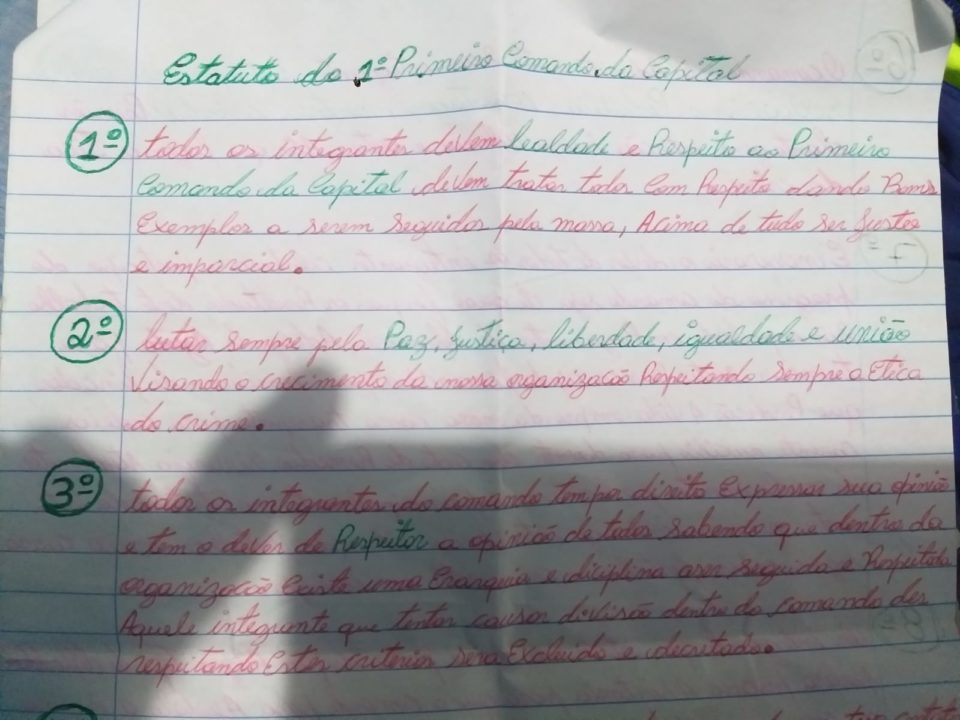 Estatuto do 1º Primeiro Comando do Capital
1º todos os integrantes devem lealdade e Respeito ao Primeiro
Comando da Capital devem tratar todos com Respeito dando Bons
Exemplos a serem seguidos pela massa, Acima de tudo ser justos
e imparcial.
2º lutar sempre pela Paz, justiça, liberdade, igualdade e união
Visando o crecimento da nossa organização Respeitando sempre a Etica
do crime.
3º todos os integrantes do comando tem por direito Expressar sua opinião
e tem o dever de Respeitar a opinião de todos sabendo que dentro da
organização Existe uma Erarquia e diciplina a ser seguida e Respeitada
Aquele integrante que tentar causar divisão dentro do comando des
respeitando Estes criterios sera Excluido e decretado.